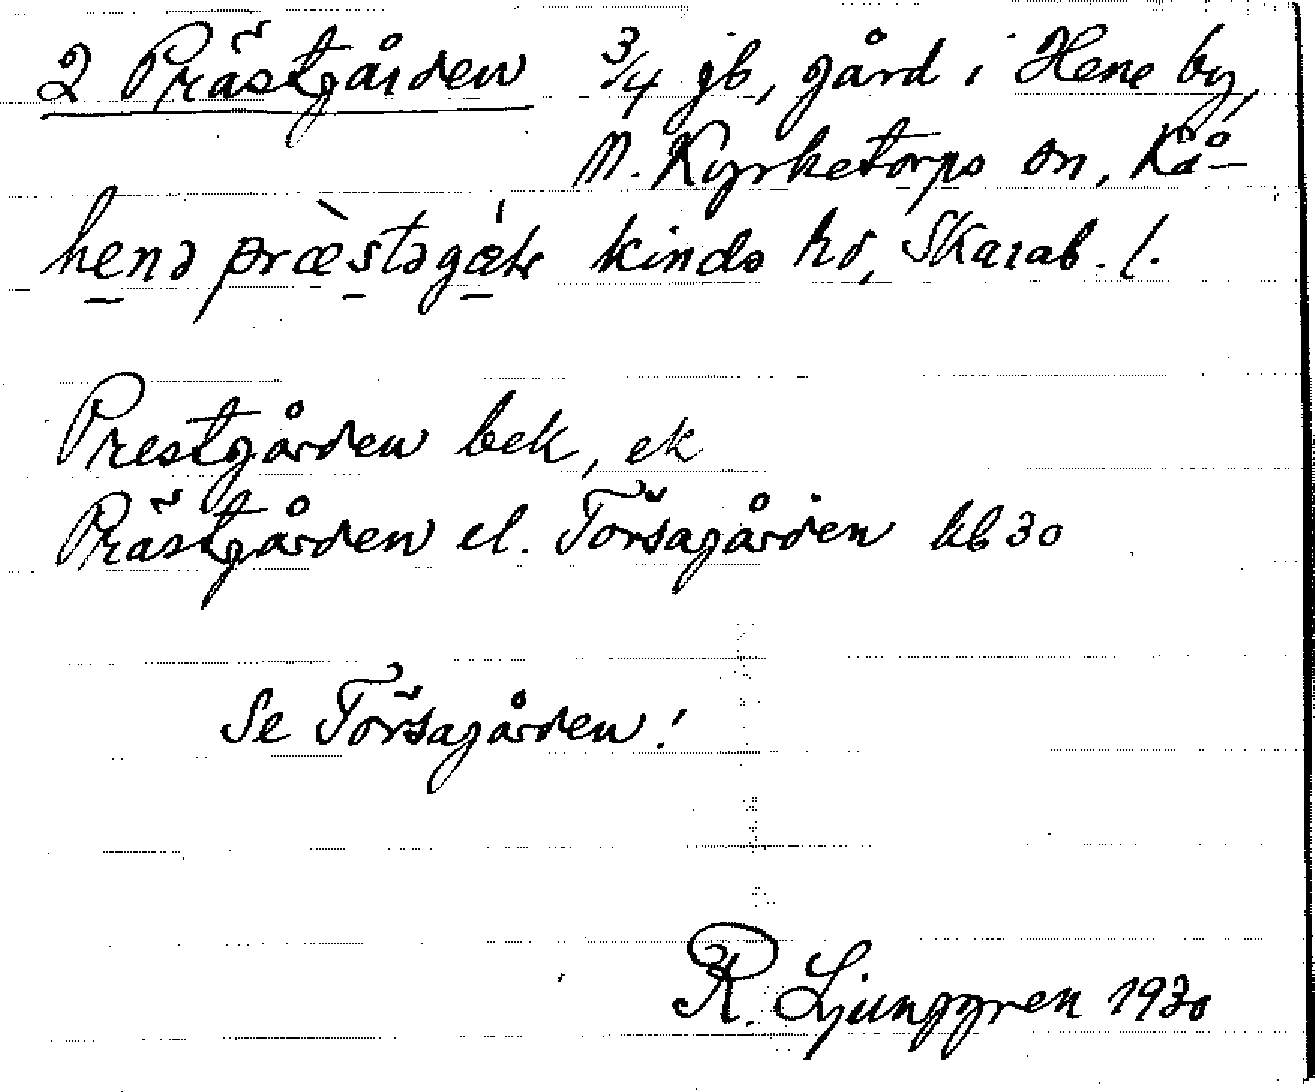 2 Prästgården 3/4 jb, gård i Hene by,
N. Kyrketorps sn, Kå-
henə præ̀stəgáɶr kinds hd, Skarab. l.
Prestgården bek, ek
Prästgården el. Torsagården kb 30
Se Torsagården!
R. Ljunggren 1930